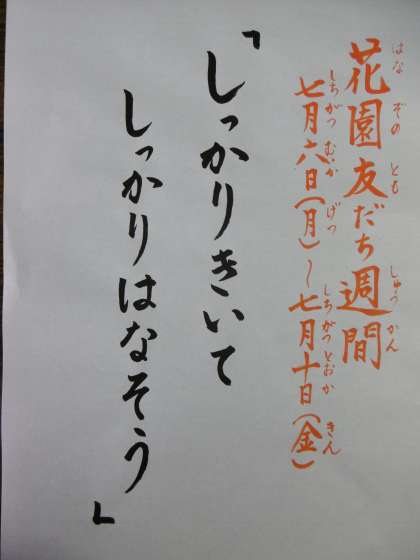 花園友だち週間
はなぞのともしゅうかん
七月六日(月)~七月十日(金)
しちがつむいかげつしちがつとおかきん
「しっかりきいて
しっかりはなそう」